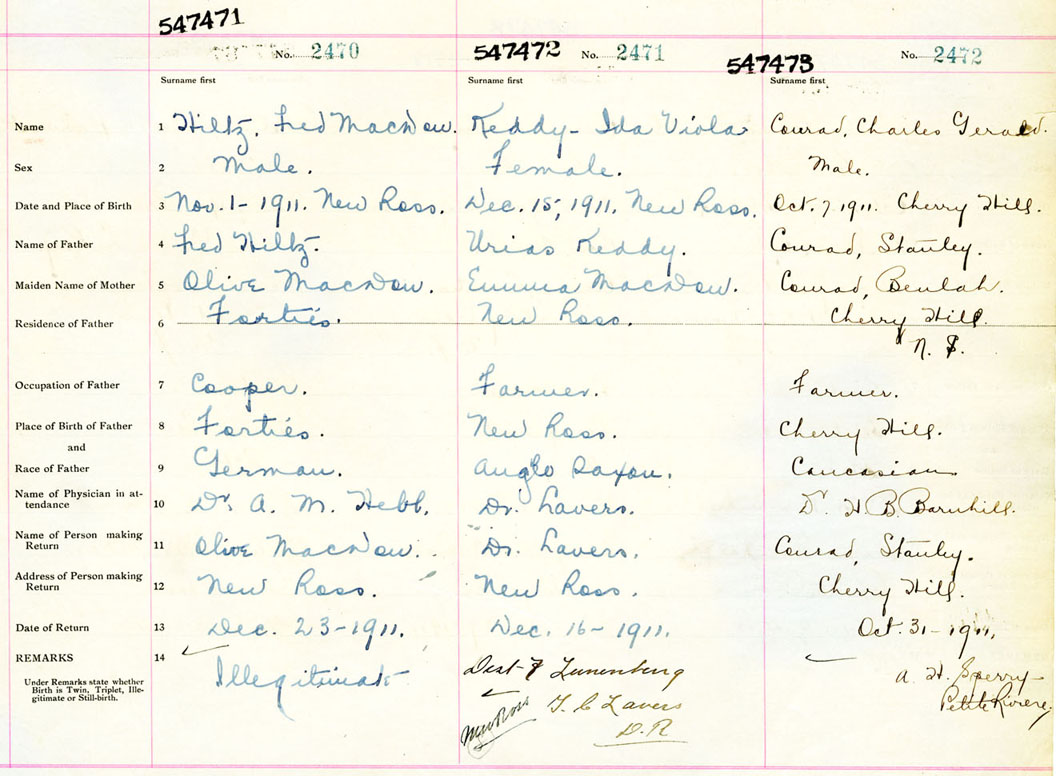 547471
No. 2470 547472 No. 2471 547473 No. 2472
Surname first Surname first Surname first
Name 1 Hiltz, Fred MacNDow. Keddy - Ida Viola Conrad, Charles Gerald.
Sex 2 Male. Female. Male.
Date and Place of Birth 3 Nov. 1 - 1911. New Ross. Dec. 15, 1911. New Ross. Oct. 7 1911. Cherry Hill.
Name of Father 4 Fred Hiltz. Urias Keddy. Conrad, Stanley.
Maiden Name of Mother 5 Olive Emma Conrad, Beulah.
Residence of Father 6 Forties. New Ross. Cherry Hill.
N. S.
Occupation of Father 7 Cooper. Farmer. Farmer.
Place of Birth of Father 8 Forties. New Ross. Cherry Hill.
and
Race of Father 9 German. Anglo Saxon. Caucasian
Name of Physician in at-
tendance 10 Dr. A. M. Hebb. Dr. Lavers. Dr H. B. Barnhill.
Name of Person making
Return 11 Olive Dr. Lavers. Conrad, Stanley.
Address of Person making
Return 12 New Ross. New Ross. Cherry Hill.
Date of Return 13 Dec. 23 - 1911. Dec. 16 - 1911. Oct. 31 - 1911.
REMARKS 14
Under Remarks state whether
Birth is Twin, Triplet, Ille-
gitimate or Still-birth.
Illegitimate
Dist of Lunenburg
New Ross
T. C Lavers
D. R
A. H. Sperry -
Petite Riviere.